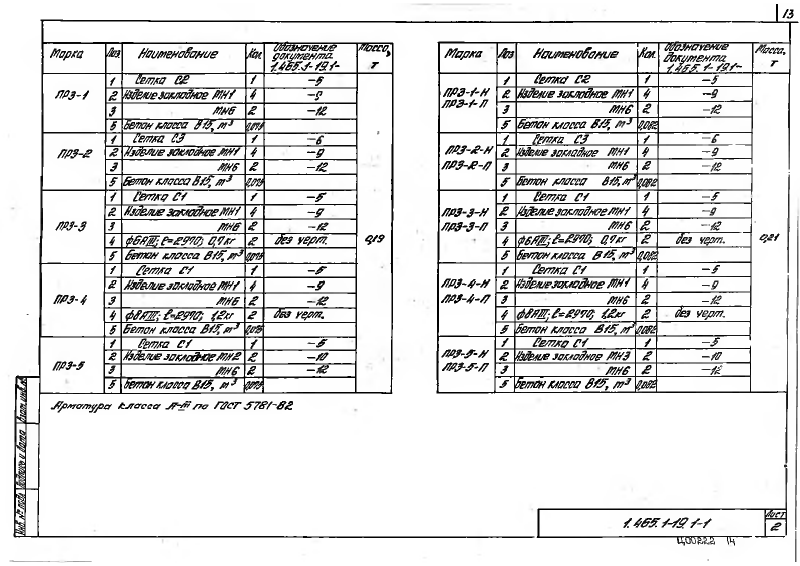 13
Марка Поз. Наименование Кол. Обозначение документа 1.465.1-19.1- Масса, т
ПРЭ-1
1 Сетка С2 1 -5
2 Изделие закладное МН1 4 -9
3 МН6 2 -12
5 Бетон класса В15, м³
ПРЭ-2
1 Сетка С3 1 -6
2 Изделие закладное МН1 4 -9
3 МН6 2 -12
5 Бетон класса В15, м³
ПРЭ-3
1 Сетка С1 1 -5
2 Изделие закладное МН1 4 -9
3 МН6 2 -12
4 ф6АIII; ℓ=2970; 0,7кг 2 без черт.
5 Бетон класса В15, м³
0,19
ПРЭ-4
1 Сетка С1 1 -5
2 Изделие закладное МН1 4 -9
3 МН6 2 -12
4 ф8АIII; ℓ=2970; 1,2кг 2 без черт.
5 Бетон класса В15, м³
ПРЭ-5
1 Сетка С1 1 -5
2 Изделие закладное МН2 2 -10
3 МН6 2 -12
5 Бетон класса В15, м³
Арматура класса А-III по ГОСТ 5781-82
Марка Поз Наименование Кол. Обозначение документа 1.465.1-19.1- Масса, т
ПРЭ-1-Н
ПРЭ-1-П
1 Сетка С2 1 -5
2 Изделие закладное МН1 4 -9
3 МН6 2 -12
5 Бетон класса В15, м³ 0,082
ПРЭ-2-Н
ПРЭ-2-П
1 Сетка С3 1 -6
2 Изделие закладное МН1 4 -9
3 МН6 2 -12
5 Бетон класса В15, м³ 0,082
ПРЭ-3-Н
ПРЭ-3-П
1 Сетка С1 1 -5
2 Изделие закладное МН1 4 -9
3 МН6 2 -12
4 ф6АIII; ℓ=2970; 0,7кг 2 без черт.
5 Бетон класса В15, м³ 0,082
0,21
ПРЭ-4-Н
ПРЭ-4-П
1 Сетка С1 1 -5
2 Изделие закладное МН1 4 -9
3 МН6 2 -12
4 ф8АIII; ℓ=2970; 1,2кг 2 без черт.
5 Бетон класса В15, м³ 0,082
ПРЭ-5-Н
ПРЭ-5-П
1 Сетка С1 1 -5
2 Изделие закладное МН3 2 -10
3 МН6 2 -12
5 Бетон класса В15, м³ 0,082
Инв. № подл. Подпись и дата Взам. инв. №
1.465.1-19.1-1
Лист
2
Ц00222 14